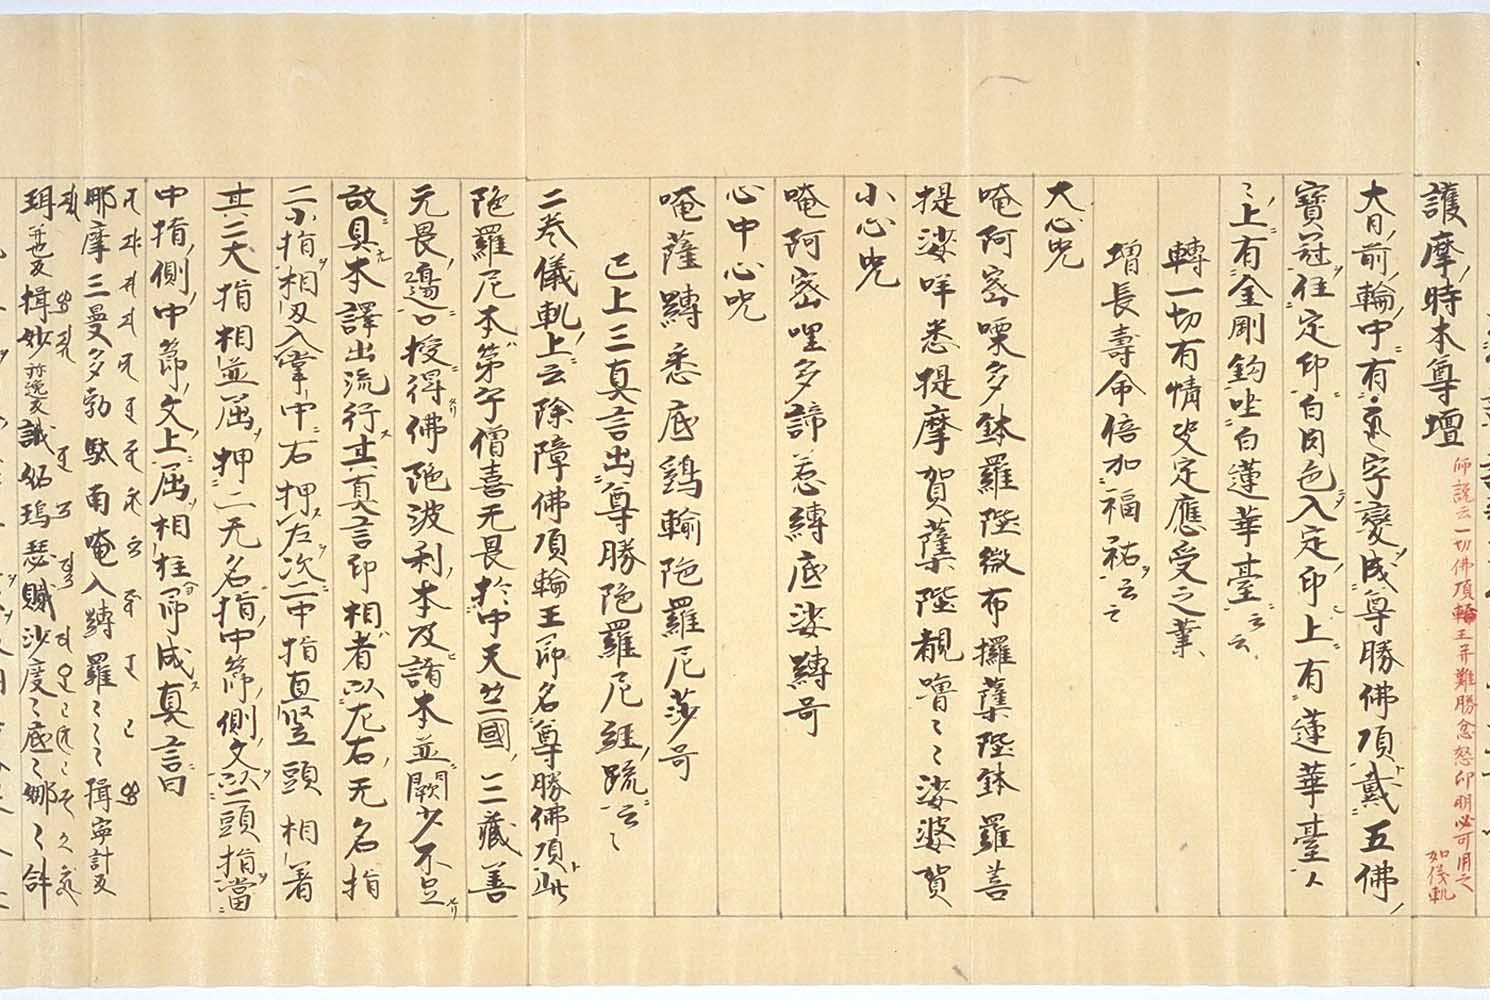 護摩時本尊壇
師説云一切佛頂輪王并難勝忿怒印明必可用之
如儀軌
大日前輪中有字變成尊勝佛頂戴五佛
寶冠住定印白肉色入定印上有蓮華臺
上有金剛鈎坐白蓮華臺云云
轉一切有情決定應受之業
增長壽命倍加福祐云云
大心呪
唵阿蜜㗚多鉢羅陛微布攞薩陛鉢羅菩
提娑咩悉提摩賀薩陛覩嚕〻娑婆賀
小心呪
唵阿蜜哩多諦惹縛底娑縛哥
心中心呪
唵薩縛悉底鷄輸陁羅尼莎哥
已上三真言出尊勝陁羅尼經䟽云〻
二巻儀軌上云除障佛頂輪王即名尊勝佛頂此
陁羅尼本第子僧喜无畏於中天竺國三藏善
无畏邊口授得佛陁波利本及諸本並闕少不足
故具本譯出流行其真言印相者以左右无名指
二小指相叉入掌中右押左次二中指直竪頭相着
其二大指相並屈押二无名指中節側文以二頭指當
中指側中節文上屈相柱即成真言曰
娜摩三曼多勃馱南唵入縛羅〻〻〻揖寧計反